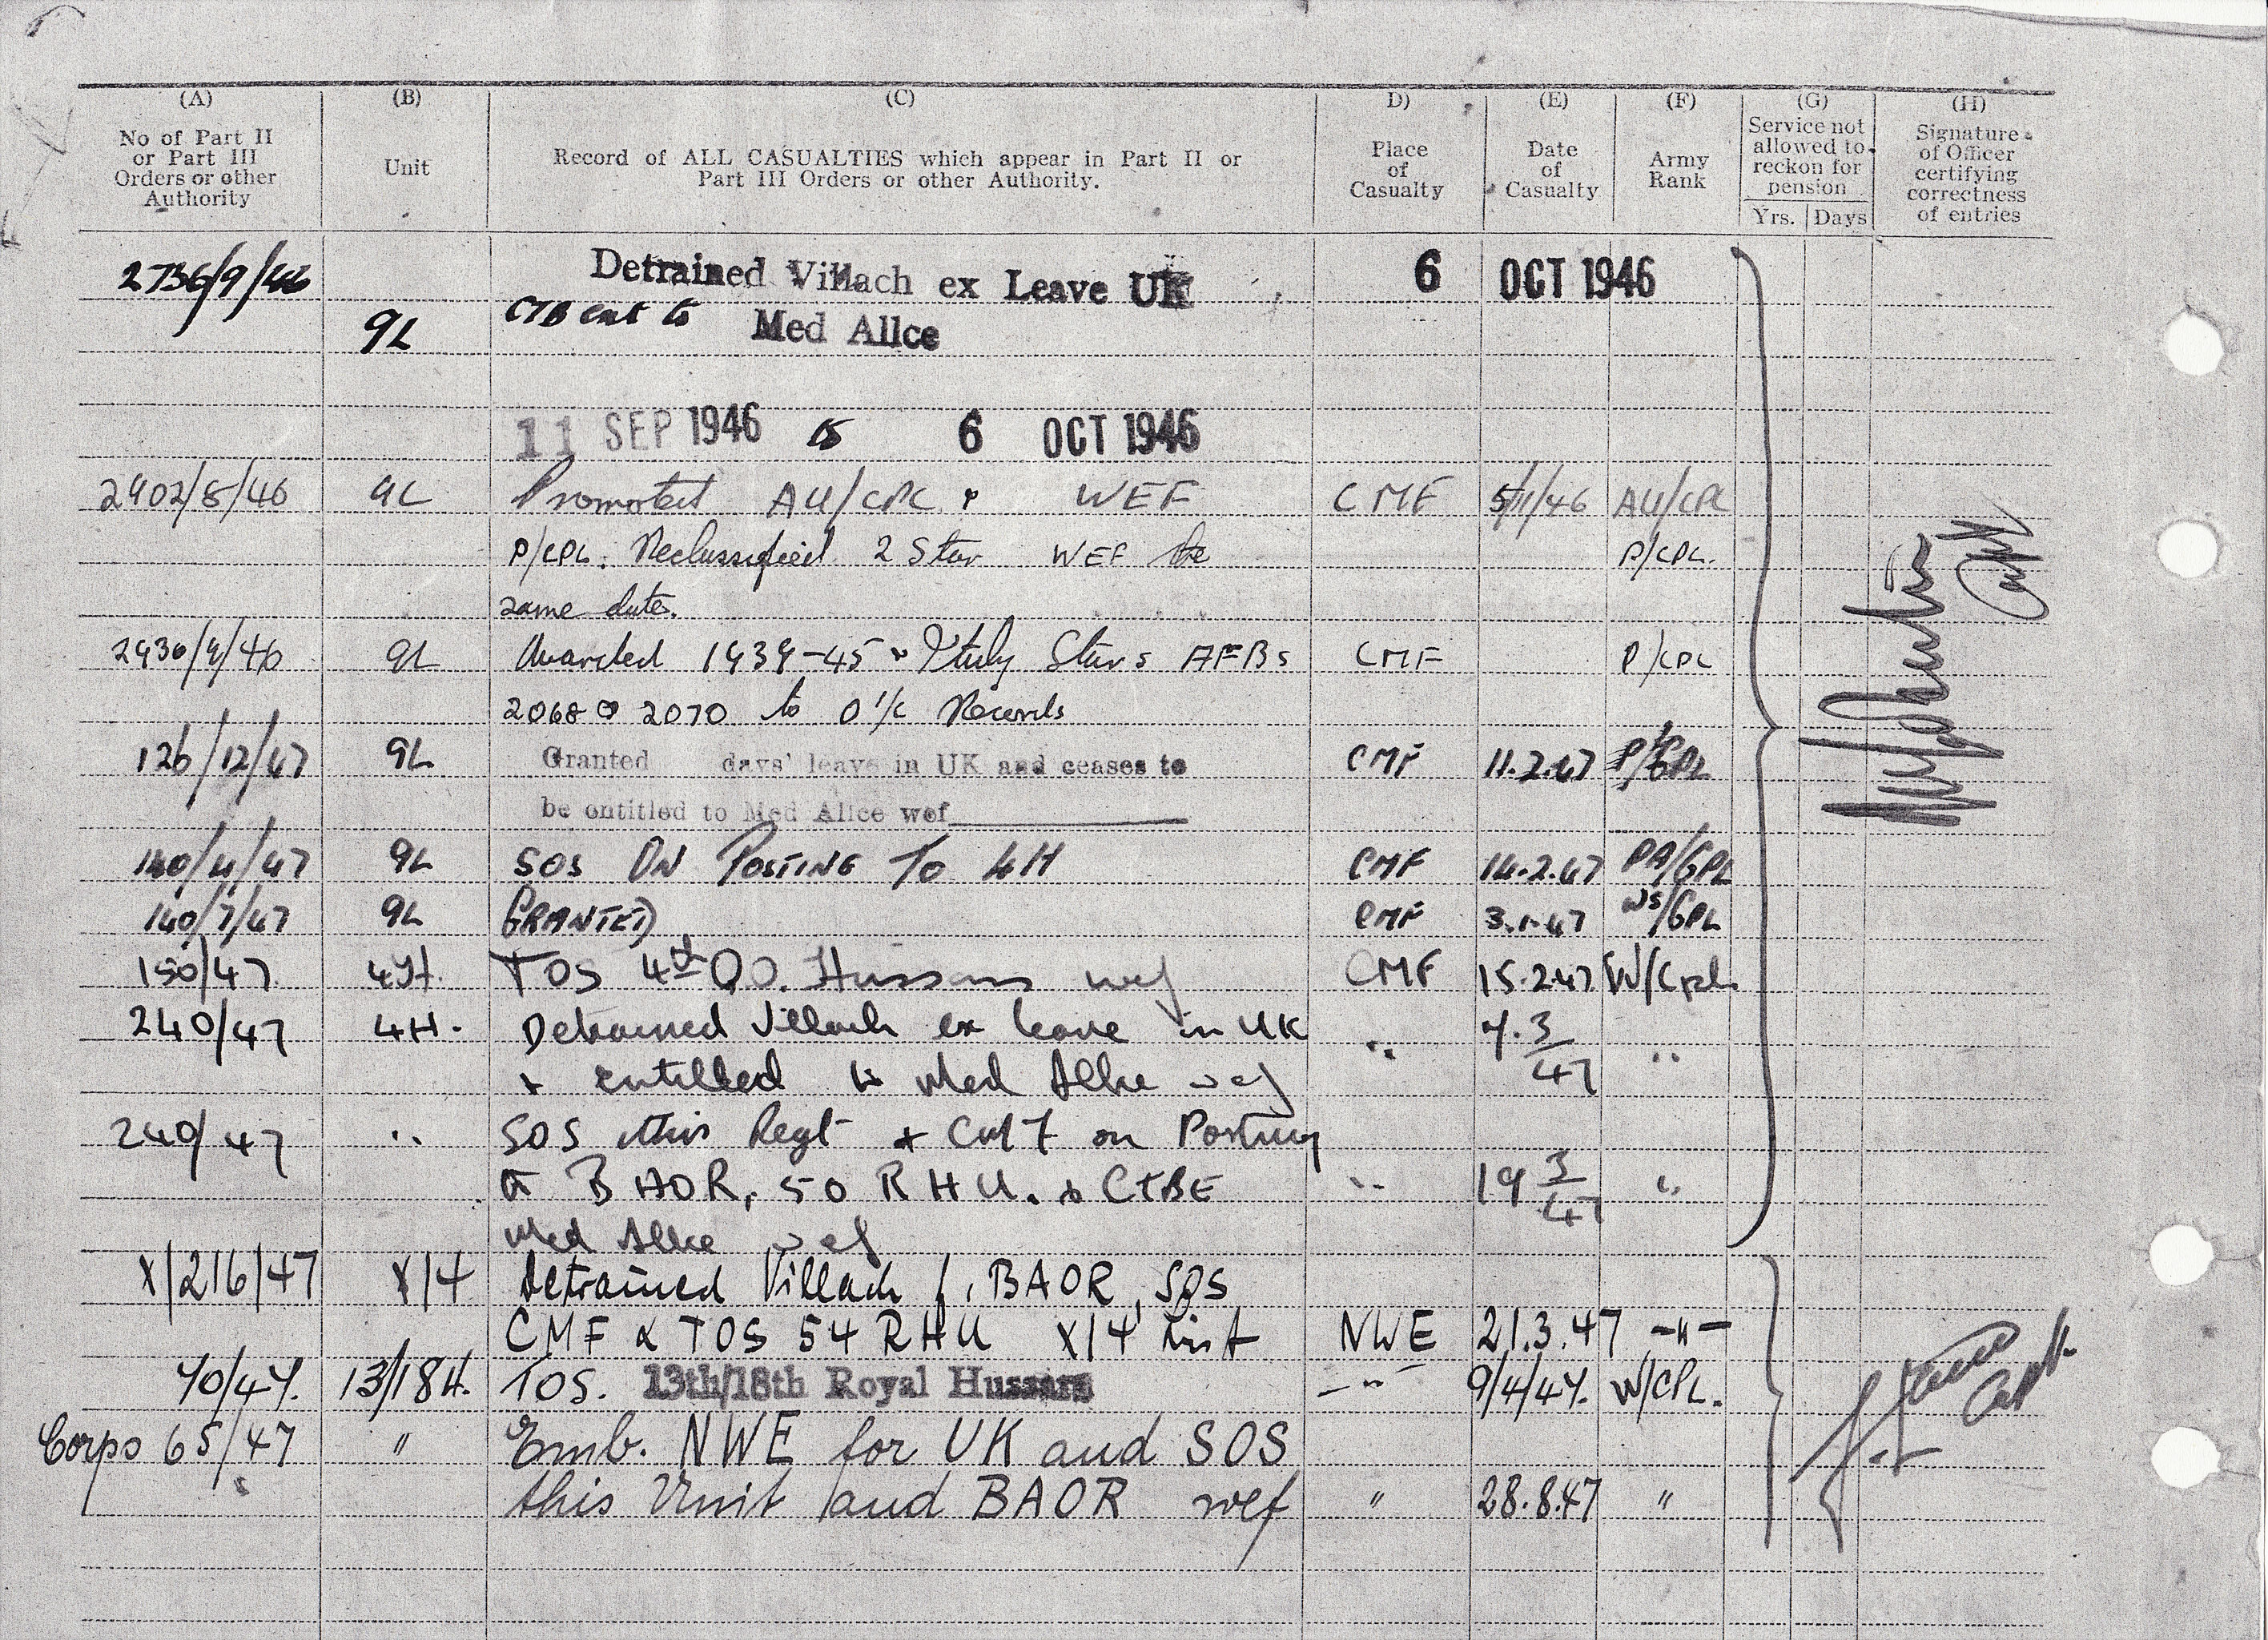 (A) (B) (C) D) (E) (F) (G) (H)
No of Part II or Part III Orders or other Authority
Unit
Record of ALL CASUALTIES which appear in Part II or Part III Orders or other Authority.
Place of Casualty
Date of Casualty
Army Rank
Service not allowed to reckon for pension
Yrs. Days
Signature of Officer certifying correctness of entries
2736/9/46 Detrained Villach ex Leave UK 6 OCT 1946
9L to Med Allce
11 SEP 1946 to 6 OCT 1946
2902/8/46 9L Promoted AU/CPL WEF CMF 5/11/46 AU/CPL
P/CPL. Reclassified 2 Star WEF the P/CPL.
same date.
2936/9/46 9L Awarded 1939-45 Italy Stars AFBs CMF P/CPL
2068 2070 to O i/c Records
126/12/47 9L Granted days' leave in UK and ceases to CMF 11.2.47 P/CPL
be entitled to Med Allce wef
140/4/47 9L SOS ON POSTING TO 4H CMF 14.2.47 PA/CPL
140/7/47 9L GRANTED CMF 3.1.47 WS/CPL
150/47 4H. TOS 4th Q.O. Hussars wef CMF 15.2.47 W/Cpl.
240/47 4H. Detrained Villach ex leave in UK " 7.3/47 "
+ entitled to Med Allce wef
240/47 " SOS this Regt + CMF on Posting
to BAOR, 50 RHU. + CTBE " 19 3/47 "
Med Allce wef
X/216/47 X/4 Detrained Villach f. BAOR, SOS
CMF & TOS 54 RHU X/4 List NWE 21.3.47 -"-
70/47. 13/18H. TOS. 13th/18th Royal Hussars -"- 9/4/47. W/CPL.
Corps 65/47 " Emb. NWE for UK and SOS
this Unit and BAOR wef " 28.8.47 "
Capt
Capt